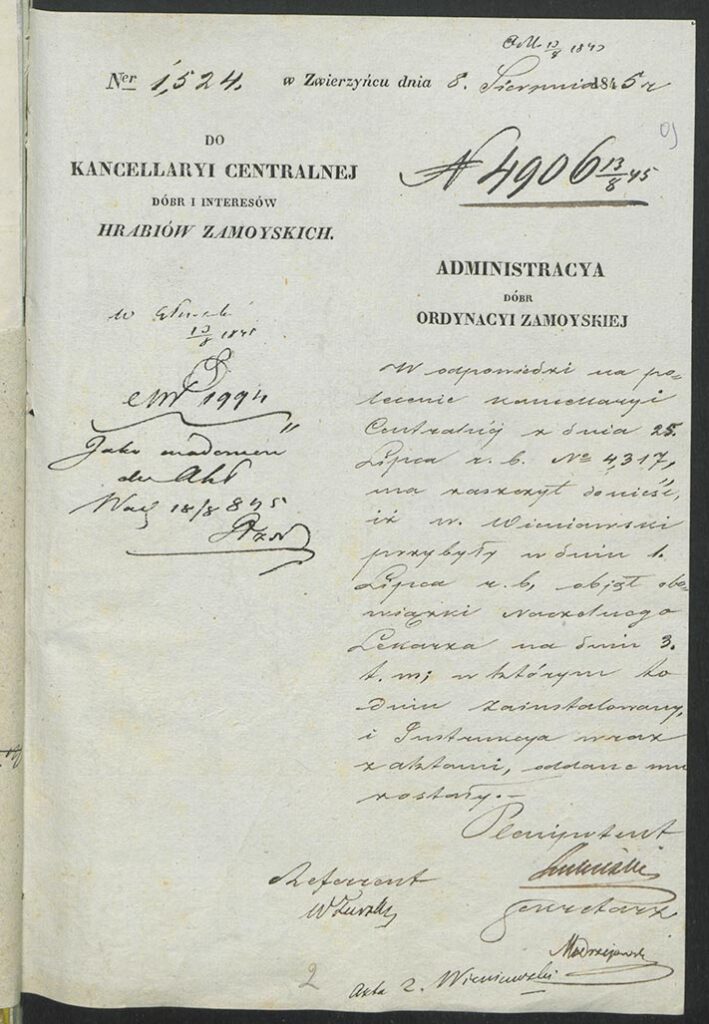 13/8 1845
Ner 1,524. w Zwierzyńcu dnia 8. Sierpnia 1845 r
DO
KANCELLARYI CENTRALNEJ
DÓBR I INTERESÓW
HRABIÓW ZAMOYSKICH.
N 4906 13/8 45
ADMINISTRACYA
DÓBR
ORDYNACYI ZAMOYSKIEJ
13/8 1845
1994
Jako wiadomość
do Akt
18/8 845
W odpowiedzi na po=
lecenie Kancellaryi
Centralnéj z dnia 25.
Lipca r. b. No 4,317,
ma zaszczyt donieść,
iż W. Wieniawski
przybyły w dniu 1.
Lipca r. b, objął obo=
wiązki Naczelnego
Lekarza na dniu 3.
t. m; w którym to
dniu zainstalowany,
i Instrukcya wraz
z aktami, oddane mu
zostały.—
Plenipotent
Referent
Sekretarz
Akta 2. Wieniawski
2